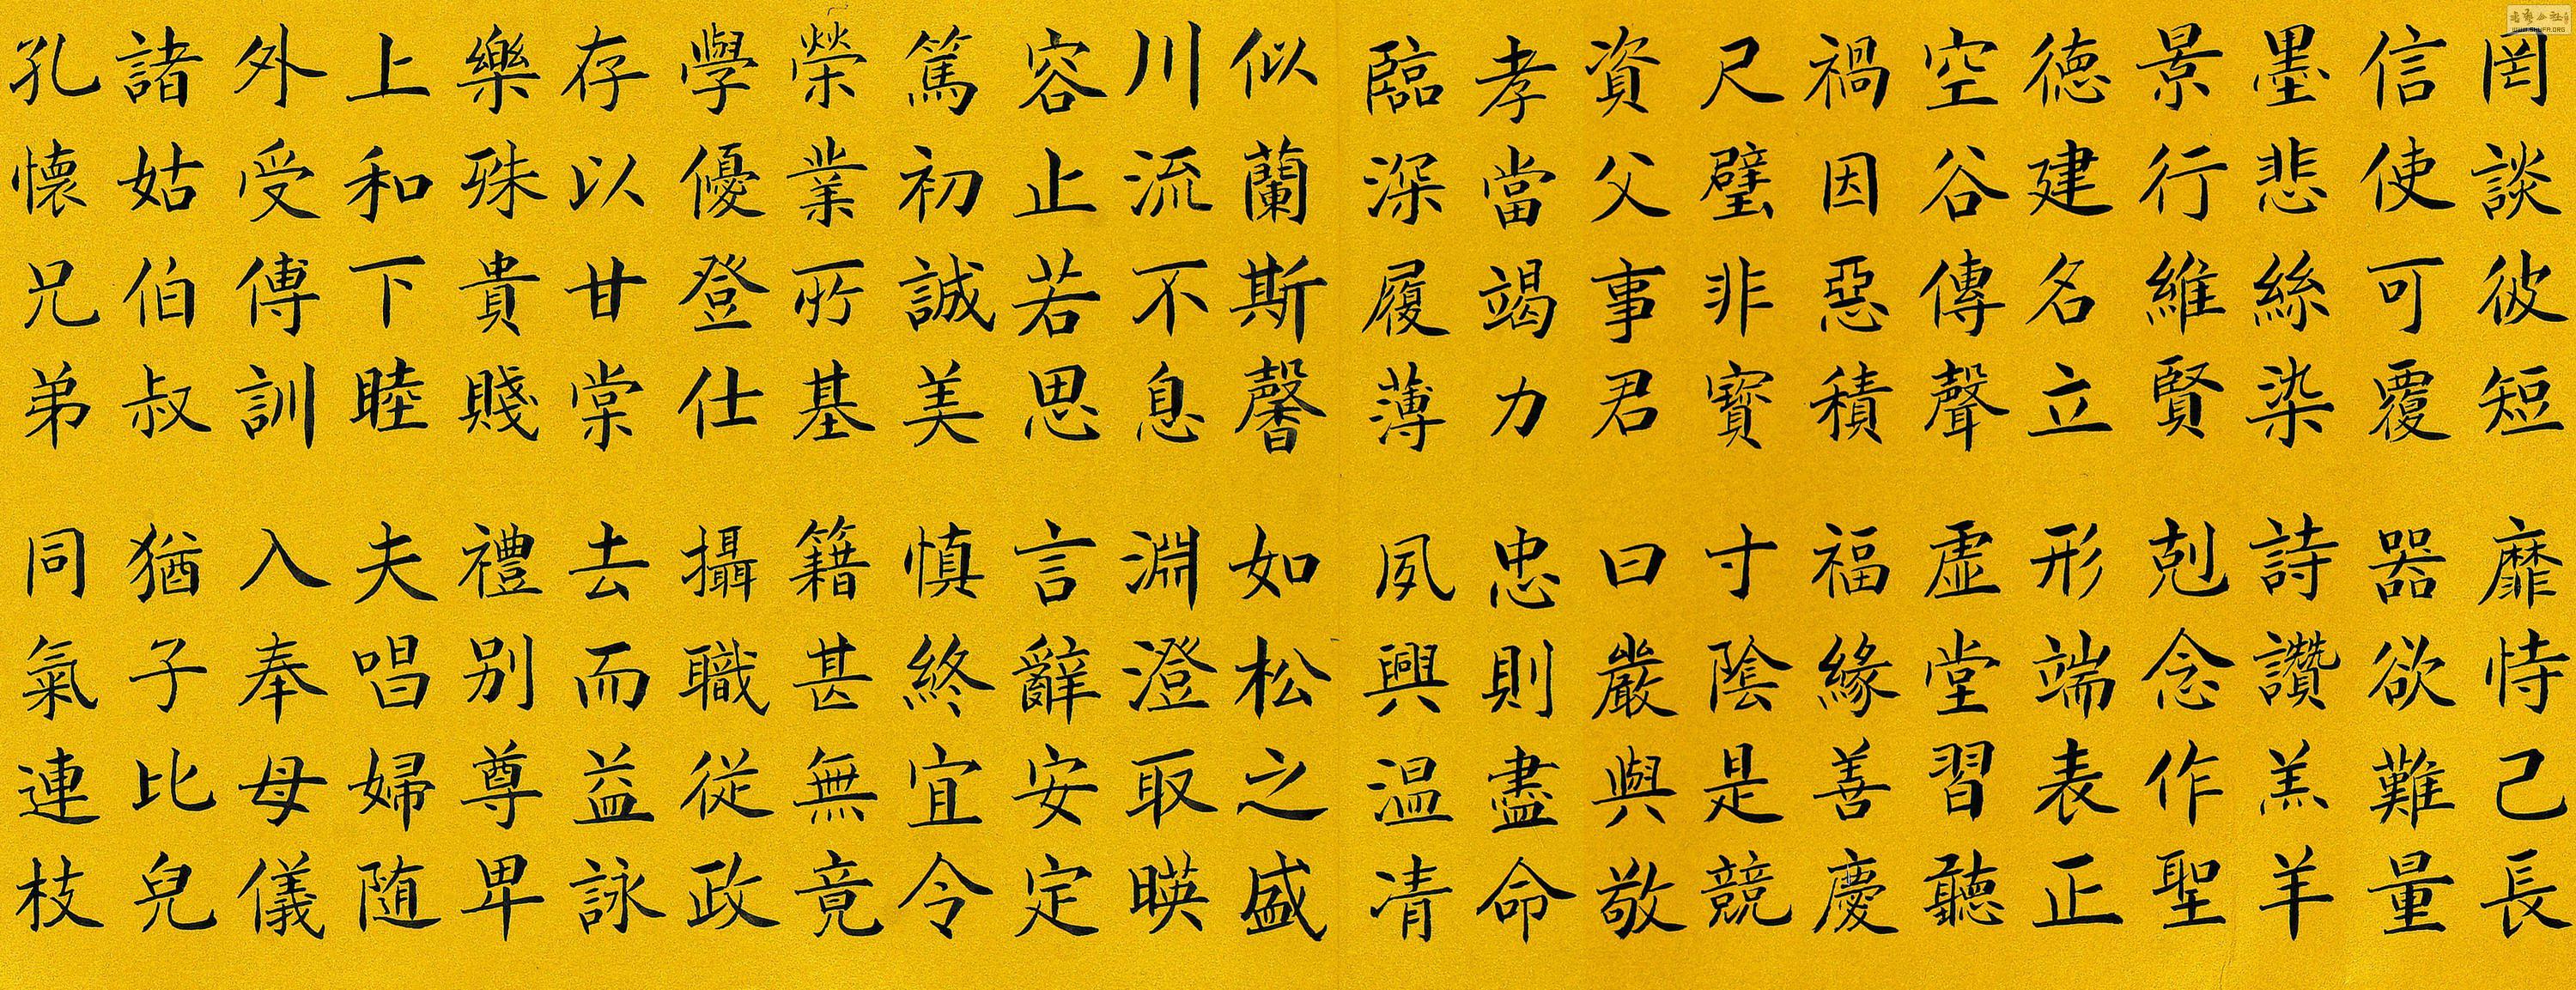 罔談彼短靡恃己長
信使可覆器欲難量
墨悲絲染詩讚羔羊
景行維賢剋念作聖
德建名立形端表正
空谷傳聲虚堂習聽
禍因惡積福緣善慶
尺璧非寶寸陰是競
資父事君曰嚴與敬
孝當竭力忠則盡命
臨深履薄夙興温凊
似蘭斯馨如松之盛
川流不息淵澄取暎
容止若思言辭安定
篤初誠美慎終宜令
榮業所基籍甚無竟
學優登仕攝職從政
存以甘棠去而益詠
樂殊貴賤禮别尊卑
上和下睦夫唱婦随
外受傅訓入奉母儀
諸姑伯叔猶子比兒
孔懷兄弟同氣連枝
WWW.SHUFA.ORG